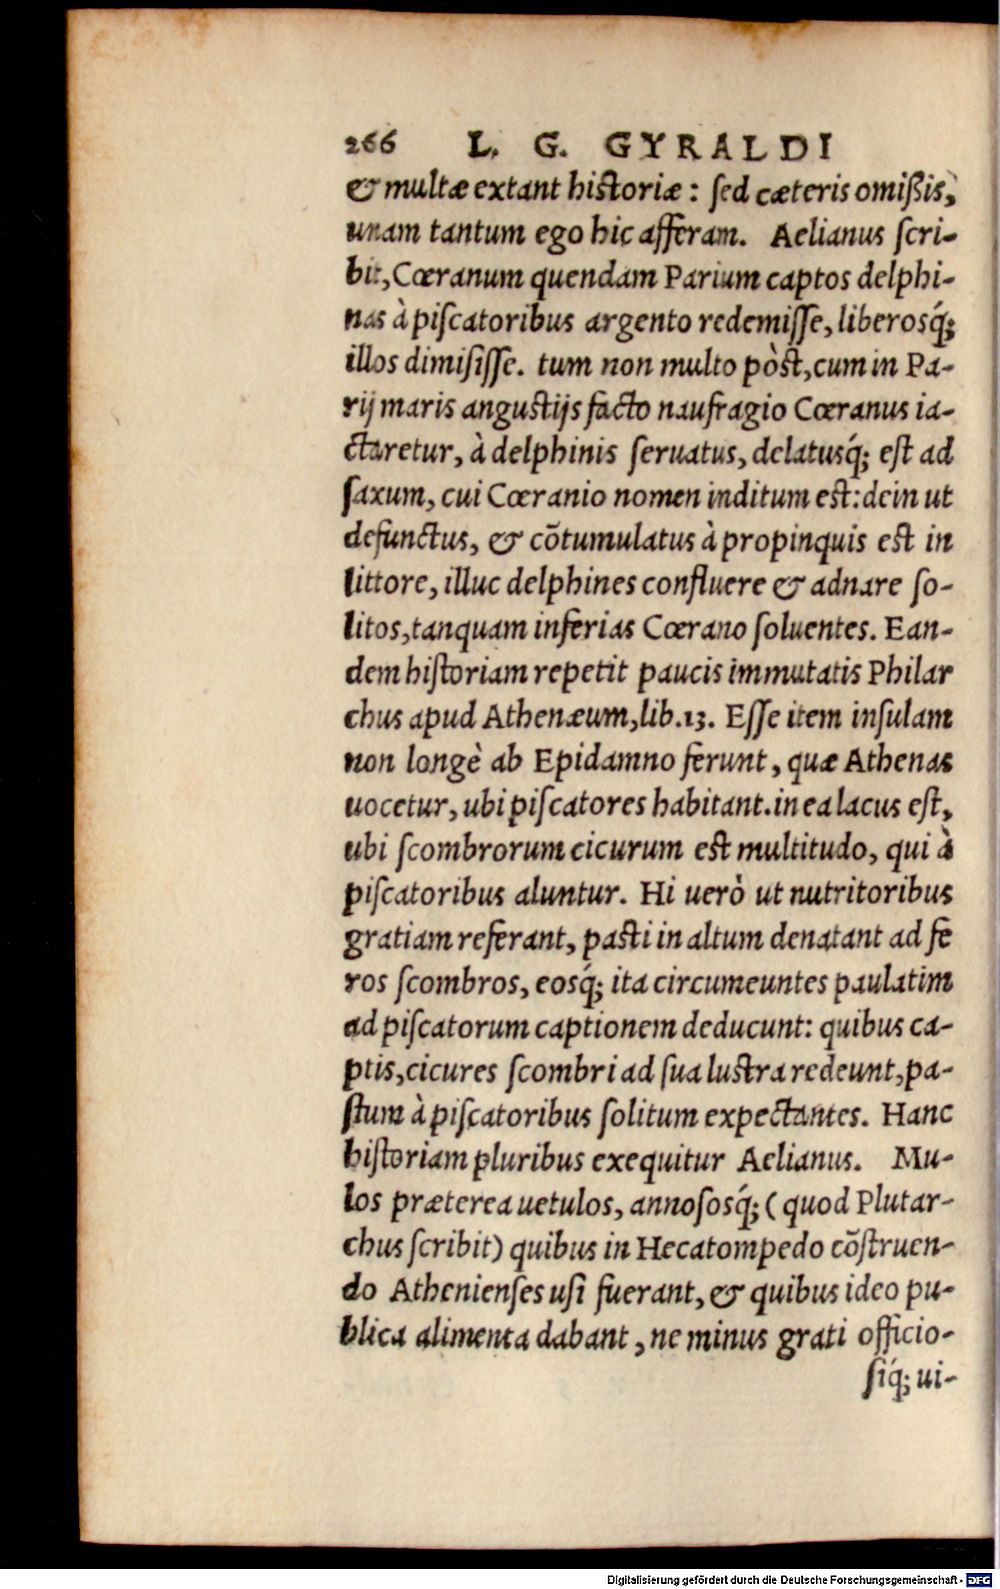 266 L. G. GYRALDI
& multæ extant historiæ: sed cæteris omißis,
unam tantum ego hic afferam. Aelianus scri-
bit, Cœranum quendam Parium captos delphi-
nas à piscatoribus argento redemisse, liberosq́;
illos dimisisse. tum non multo pòst, cum in Pa-
rij maris angustijs facto naufragio Cœranus ia-
ctaretur, à delphinis seruatus, delatusq́; est ad
saxum, cui Cœranio nomen inditum est: dein ut
defunctus, & cōtumulatus à propinquis est in
littore, illuc delphines confluere & adnare so-
litos, tanquam inferias Cœrano soluentes. Ean-
dem historiam repetit paucis immutatis Philar
chus apud Athenæum, lib.13. Esse item insulam
non longè ab Epidamno ferunt, quæ Athenas
uocetur, ubi piscatores habitant. in ea lacus est,
ubi scombrorum cicurum est multitudo, qui à
piscatoribus aluntur. Hi uerò ut nutritoribus
gratiam referant, pasti in altum denatant ad fe
ros scombros, eosq́; ita circumeuntes paulatim
ad piscatorum captionem deducunt: quibus ca-
ptis, cicures scombri ad sua lustra redeunt, pa-
stum à piscatoribus solitum expectantes. Hanc
historiam pluribus exequitur Aelianus. Mu-
los præterea uetulos, annososq́; (quod Plutar-
chus scribit) quibus in Hecatompedo cōstruen-
do Athenienses usi fuerant, & quibus ideo pu-
blica alimenta dabant, ne minus grati officio-
siq́; ui-
Digitalisierung gefördert durch die Deutsche Forschungsgemeinschaft - DFG